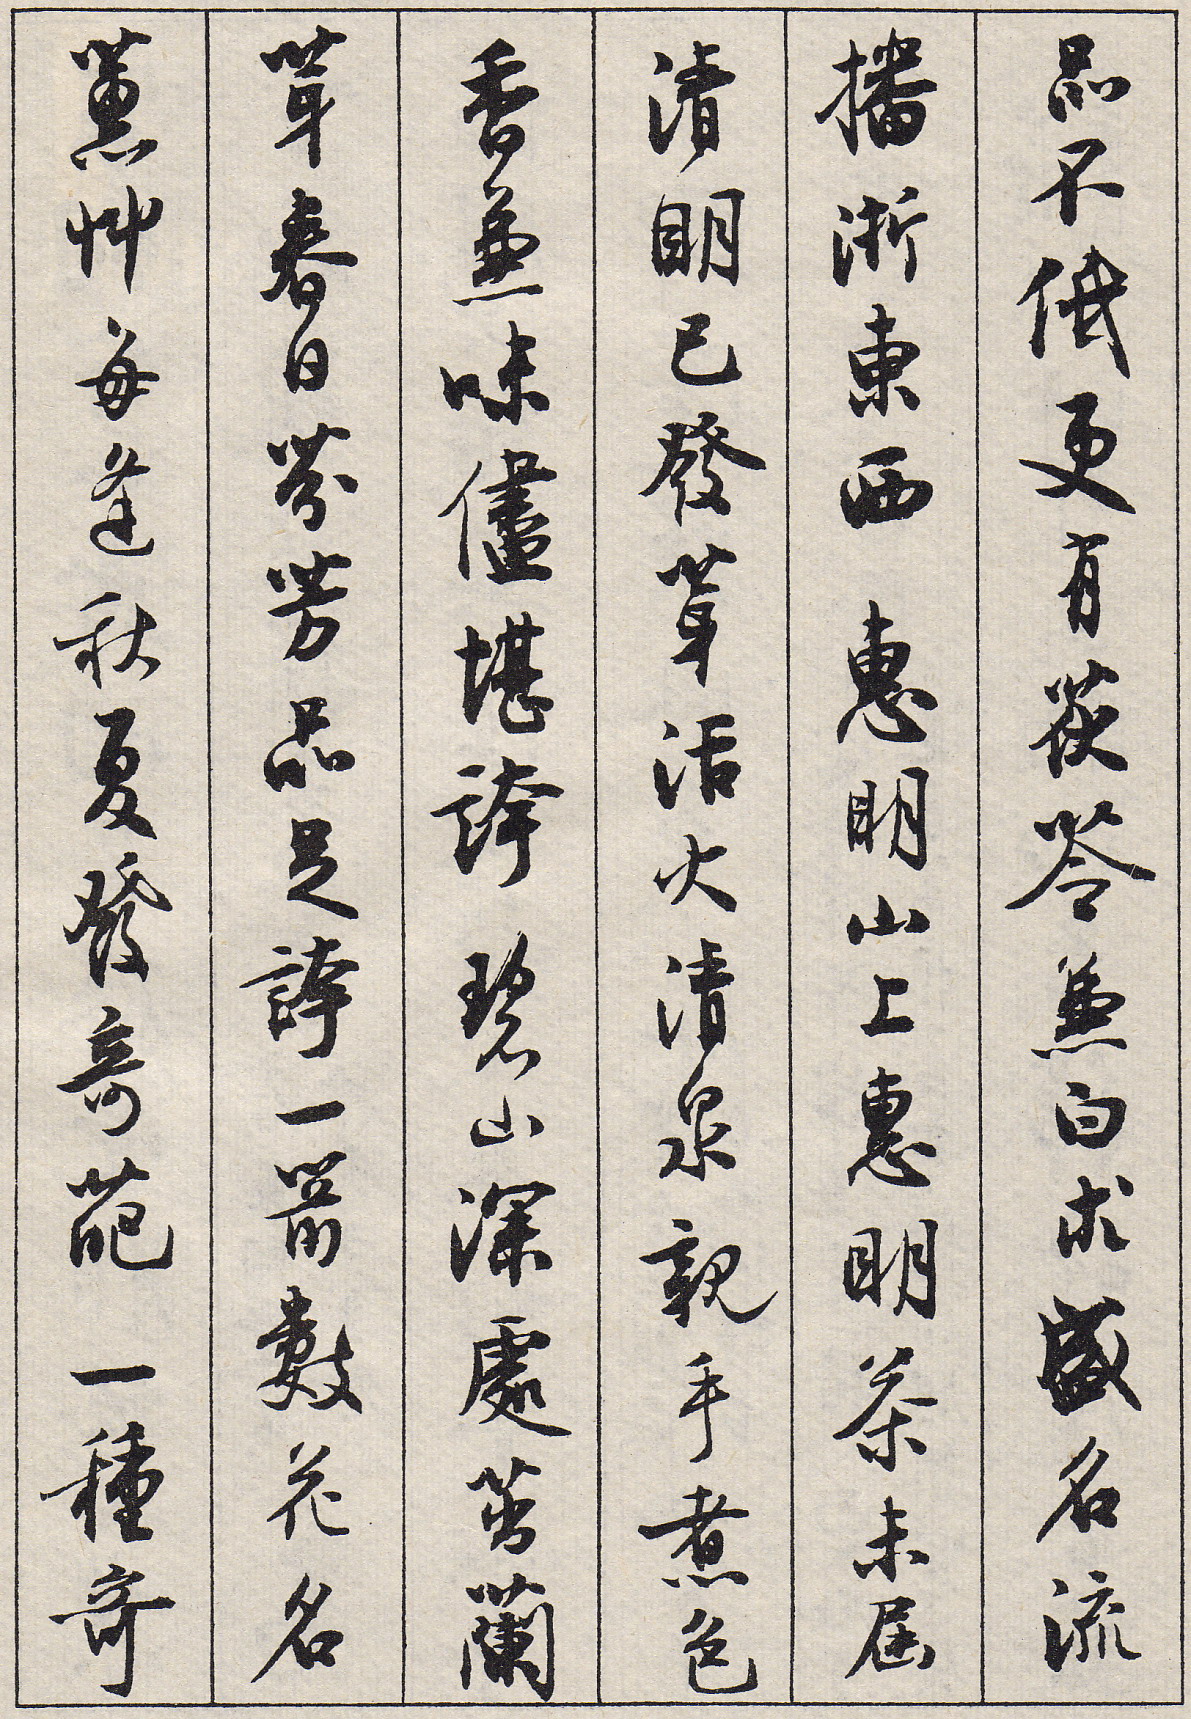 品不低更有茯苓兼白术盛名流
播浙東西 惠明山上惠明茶未届
清明已發芽活火清泉親手煮色
香兼味儘堪誇 碧山深處茁蘭
芽春日芬芳品足誇一箭數花名
蕙艸每逢秋夏發奇葩 一種奇